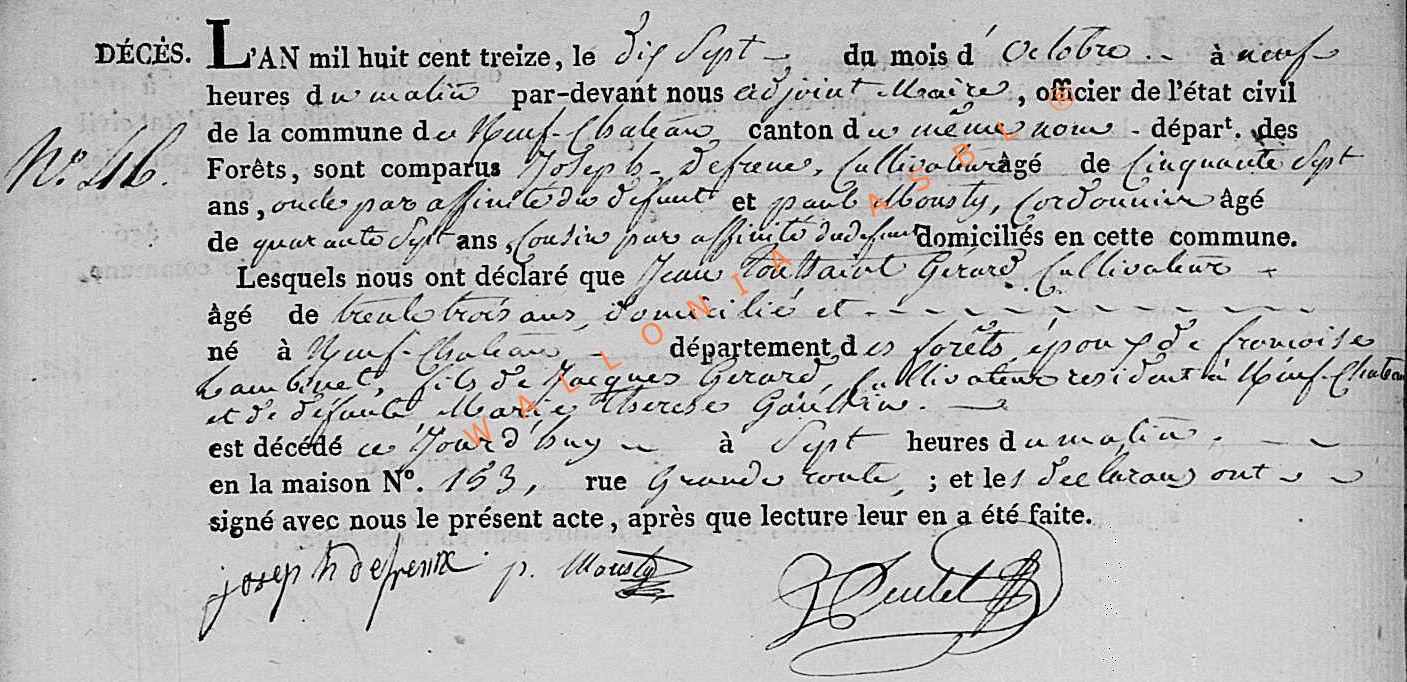 DÉCÈS. L'AN mil huit cent treize, le Dix Sept du mois d'Octobre à neuf
heures du matin par-devant nous adjoint Maire, officier de l'état civil
de la commune de Neuf-Chateau canton du même nom - départ. des
N.º 46. Forêts, sont comparus Joseph Defrene, Cultivateur âgé de Cinquante Sept
ans, oncle par affinité du défunt et paul Mousty, Cordonnier âgé
de quarante Sept ans, Cousin par affinité du defunt domiciliés en cette commune.
Lesquels nous ont déclaré que Jean Toussaint Gérard Cultivateur
âgé de trente trois ans, domicilié et
né à Neuf-Chateau, département des forêts, époux de francoise
Lambinet, fils de Jacques Gerard, Cultivateur resident à Neuf-Chateau
et de défunte Marie Therese
est décédé ce Jourd'huy à Sept heures du matin.
en la maison Nº. 153, rue Grande route, ; et les declarans ont
signé avec nous le présent acte, après que lecture leur en a été faite.
joseph defrenne p. Mousty
WALLONIA ASBL ®